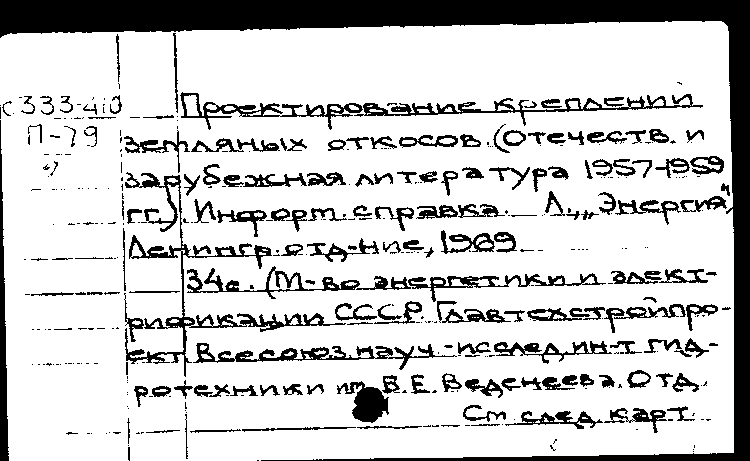 с333-410 Проектирование креплений
П-79 земляных откосов. (Отечеств. и
зарубежная литература 1957-1959
гг.). Информ. справка. Л., „Энергия",
Ленингр. отд-ние, 1969
34с. (М-во энергетики и элект-
рификации СССР. Главтехстройпро-
ект. Всесоюз. науч.-исслед. ин-т гид-
ротехники им. В.Е. Веденеева. Отд.
См след. карт.